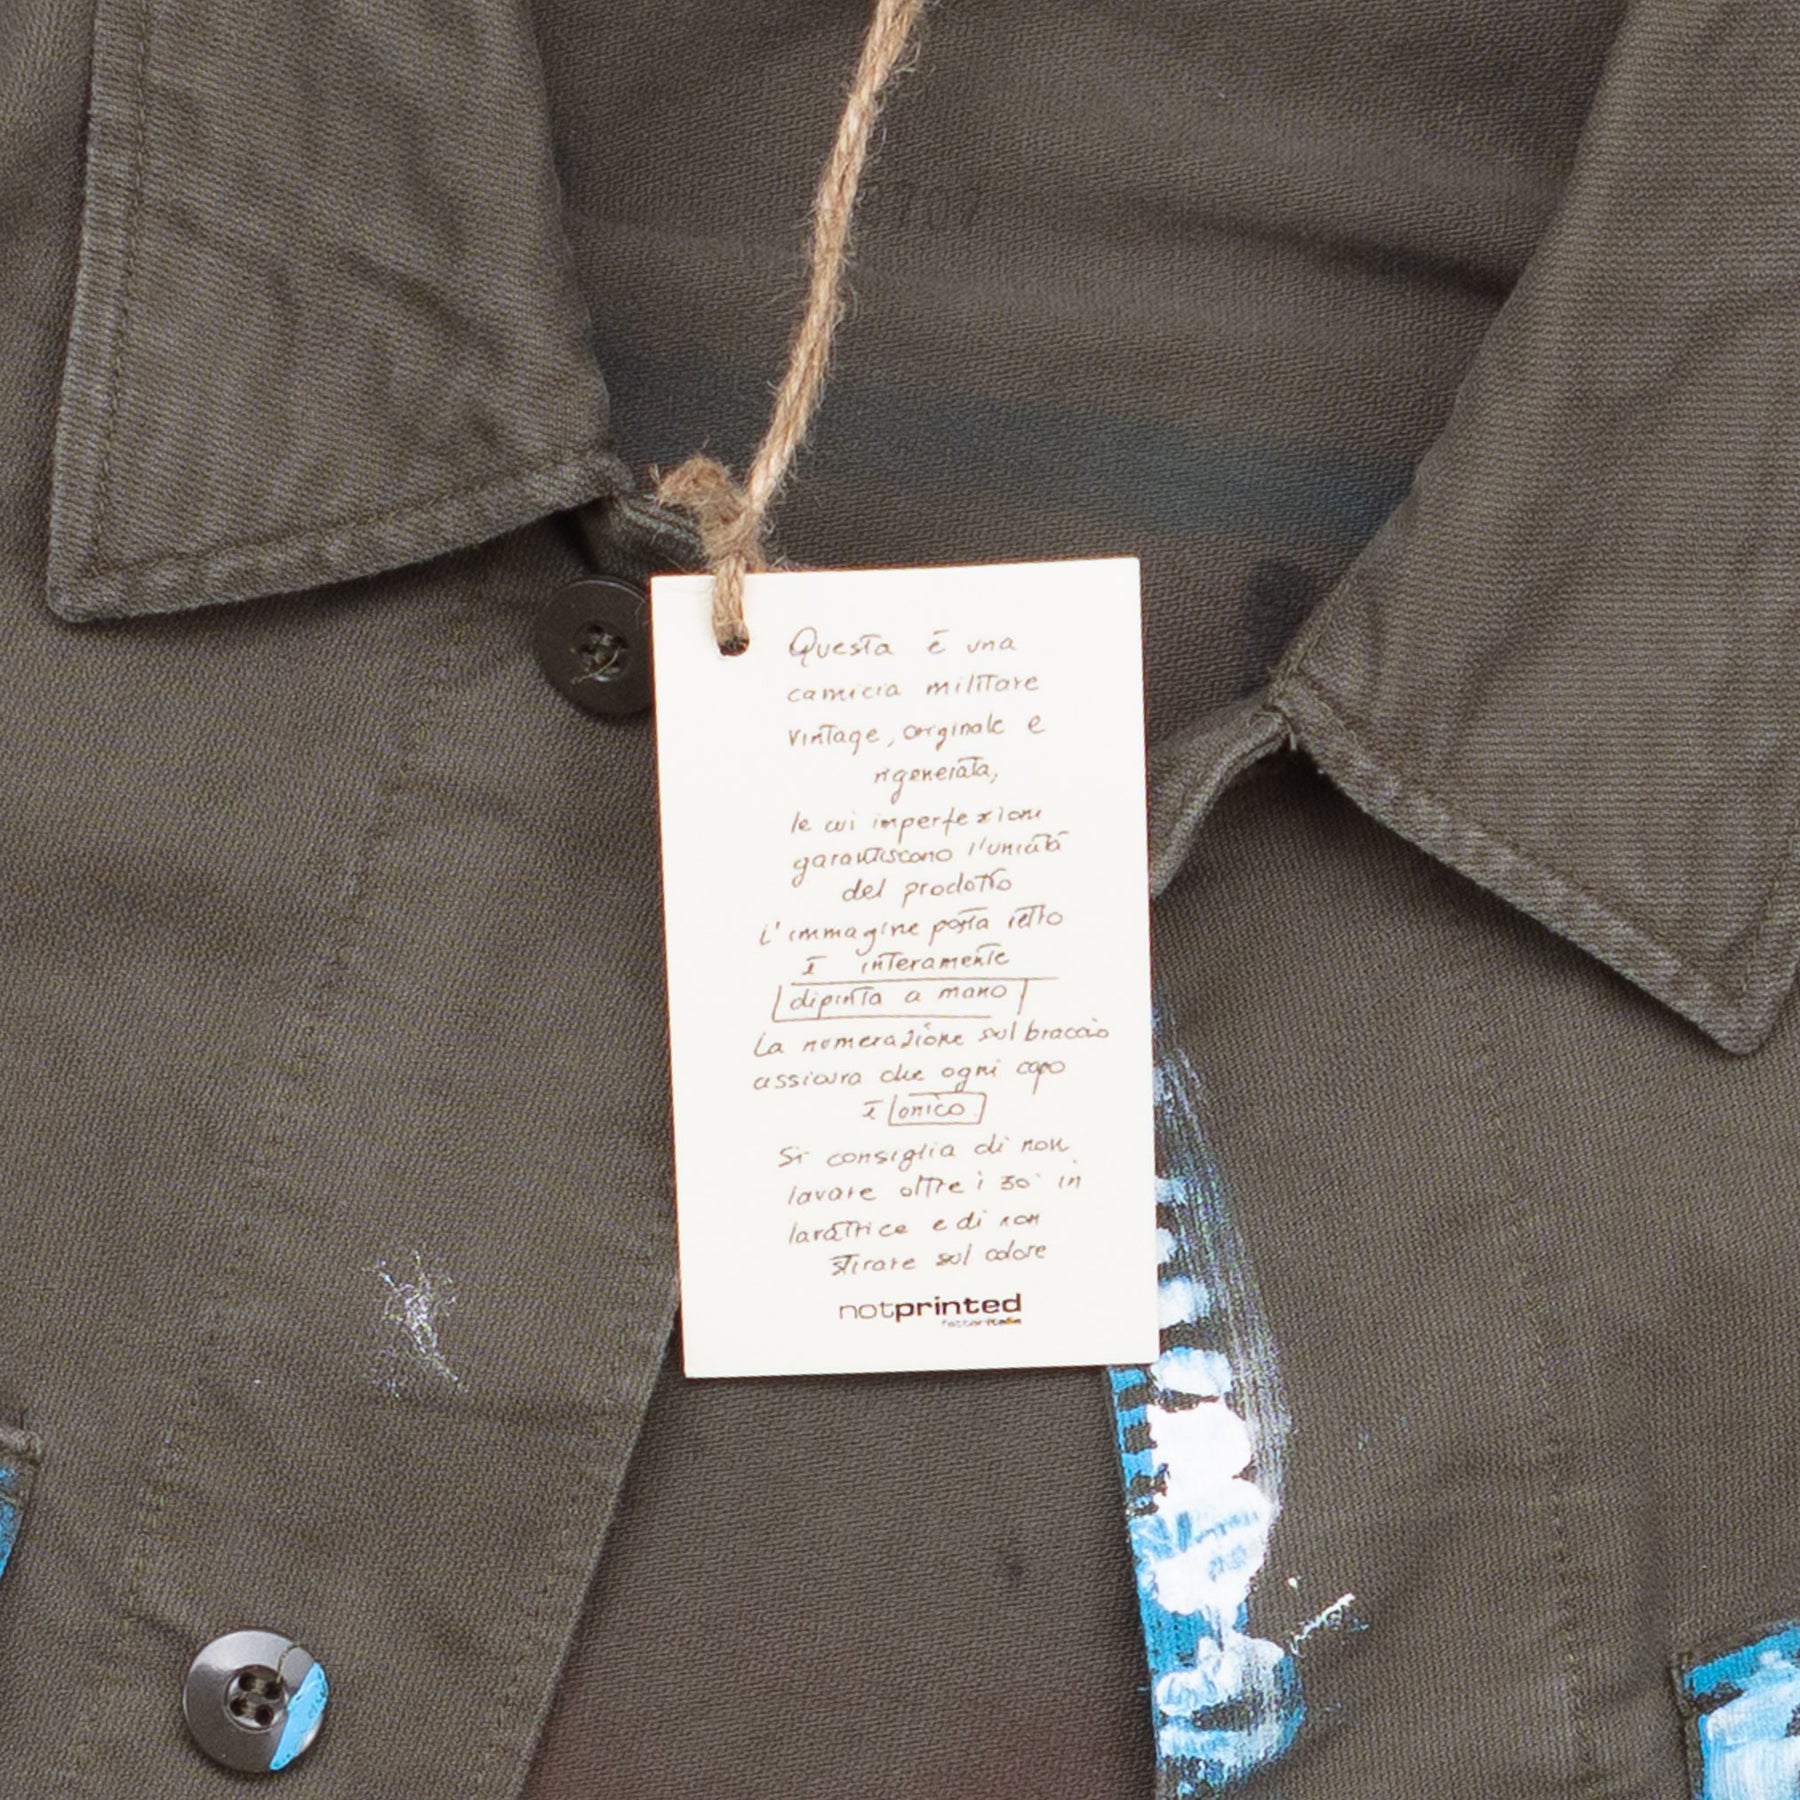 Questa è una
camicia militare
vintage, originale e
rigenerata,
le cui imperfezioni
garantiscono l'unicità
del prodotto
L'immagine posta retro
è interamente
dipinta a mano
La numerazione sul braccio
assicura che ogni capo
è unico.
Si consiglia di non
lavare oltre i 30° in
lavatrice e di non
stirare sul colore
notprinted